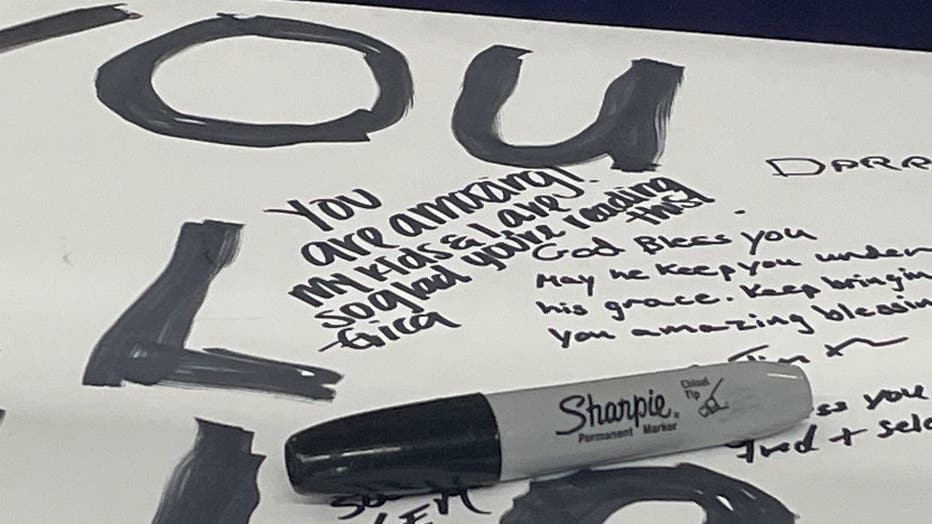 OU
You
are amazing!
my kids & I are
so glad you're reading
this!
-Erica
DARR
God Bless you
May he keep you under
his grace. Keep bringin
you amazing blessin
Jim
L
Sharpie
Permanent Marker
Chisel
Tip
ss you
Fred +